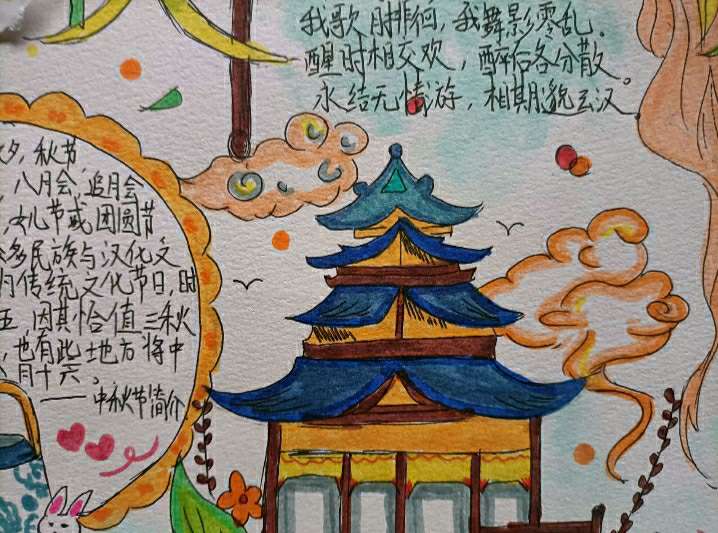 我歌月徘徊，我舞影零乱。
醒时相交欢，醉后各分散。
永结无情游，相期邈云汉。
夕，秋节
，八月会，追月会
，女儿节或团圆节
多民族与汉化文
的传统文化节日，时
五，因其恰值三秋
，也有些地方将中
月十六。
——中秋节简介